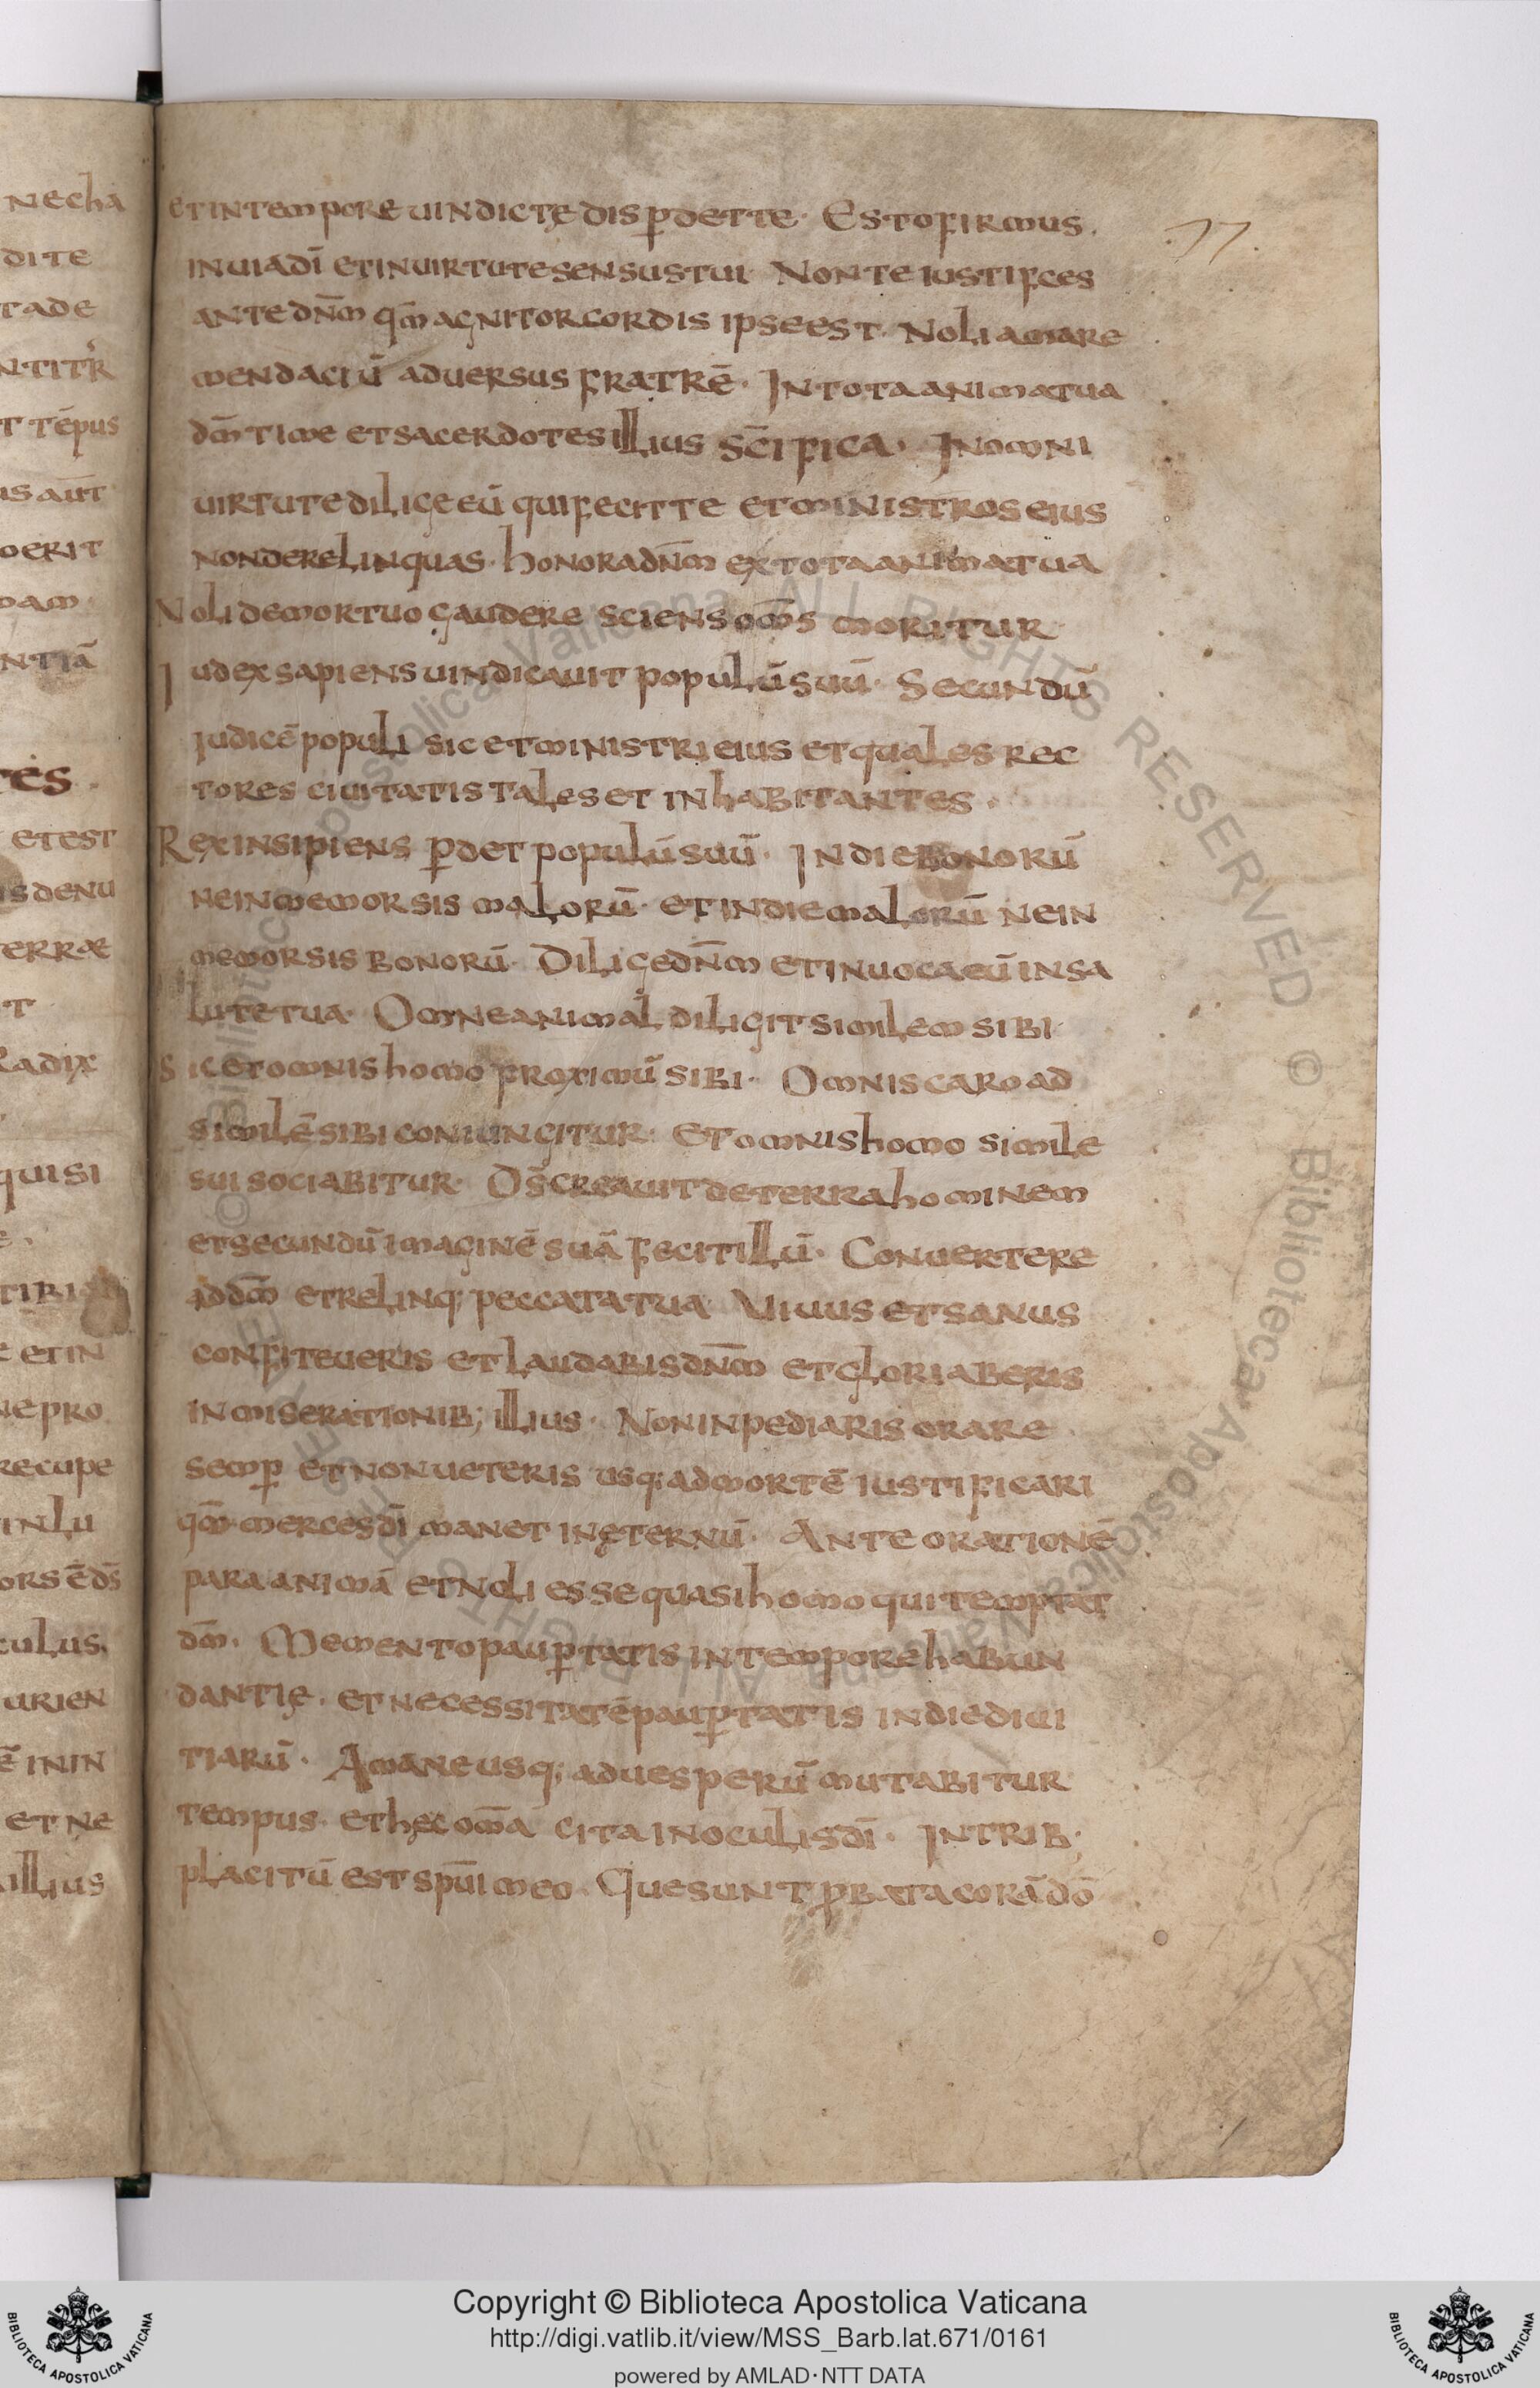 necha
dite
tade
ntitr̄
t tēpus
us aut̄
oerit
mam
ntiā
tes
etest
is denu
terrae
t
radix
quisi
e
tibi
e etin
nepro
recupe
inlu
ors ē d̄s
culus
urien
ē inin
et ne
illius
77.
et intempore uindictę disꝑdet te · Esto firmus
in uia dī et in uirtute sensus tui · Non te iustifces
ante dn̄m qm̄ agnitor cordis ipse est · Noli amare
mendaciū aduersus fratrē · In tota anima tua
dm̄ time et sacerdotes illius sc̄ifica · In omni
uirtute dilige eū qui fecit te et ministros eius
non derelinquas · honora dn̄m ex tota anima tua
Noli de mortuo gaudere sciens om̄s moritur
Iudex sapiens uindicauit populū suū · Secundū
iudicē populi sic et ministri eius et quales rec
tores ciuitatis tales et inhabitantes ·
Rex insipiens ꝑdet populū suū · In die bonorū
ne inmemor sis malorū · et in die malorū ne in
memor sis bonorū · Dilige dn̄m et inuoca eū in sa
lute tua · Omne animal diligit similem sibi
Sic et omnis homo proximū sibi · Omnis caro ad
similē sibi coniungitur · Et omnis homo simile
sui sociabitur · Ds̄ creauit de terra hominem
et secundū imaginē suā fecit illū · Conuertere
ad dm̄ et relinq; peccata tua Viuus et sanus
confiteueris et laudabis dn̄m et gloriaberis
in miserationib; illius · Non inpediaris orare
semꝑ et non ueteris usq; ad mortē iustificari
qm̄ merces dī manet in ęternū · Ante orationē
para animā et noli esse quasi homo qui temptat
dm̄ · Memento pauꝑtatis in tempore habun
dantię · et necessitatē pauꝑtatis in die diui
tiarū · A mane usq; ad uesperū mutabitur
tempus · et hęc om̄a cita in oculis dī · In trib;
placitū est spūi meo · Que sunt ꝓbata corā dō
Copyright © Biblioteca Apostolica Vaticana
http://digi.vatlib.it/view/MSS_Barb.lat.671/0161
powered by AMLAD·NTT DATA